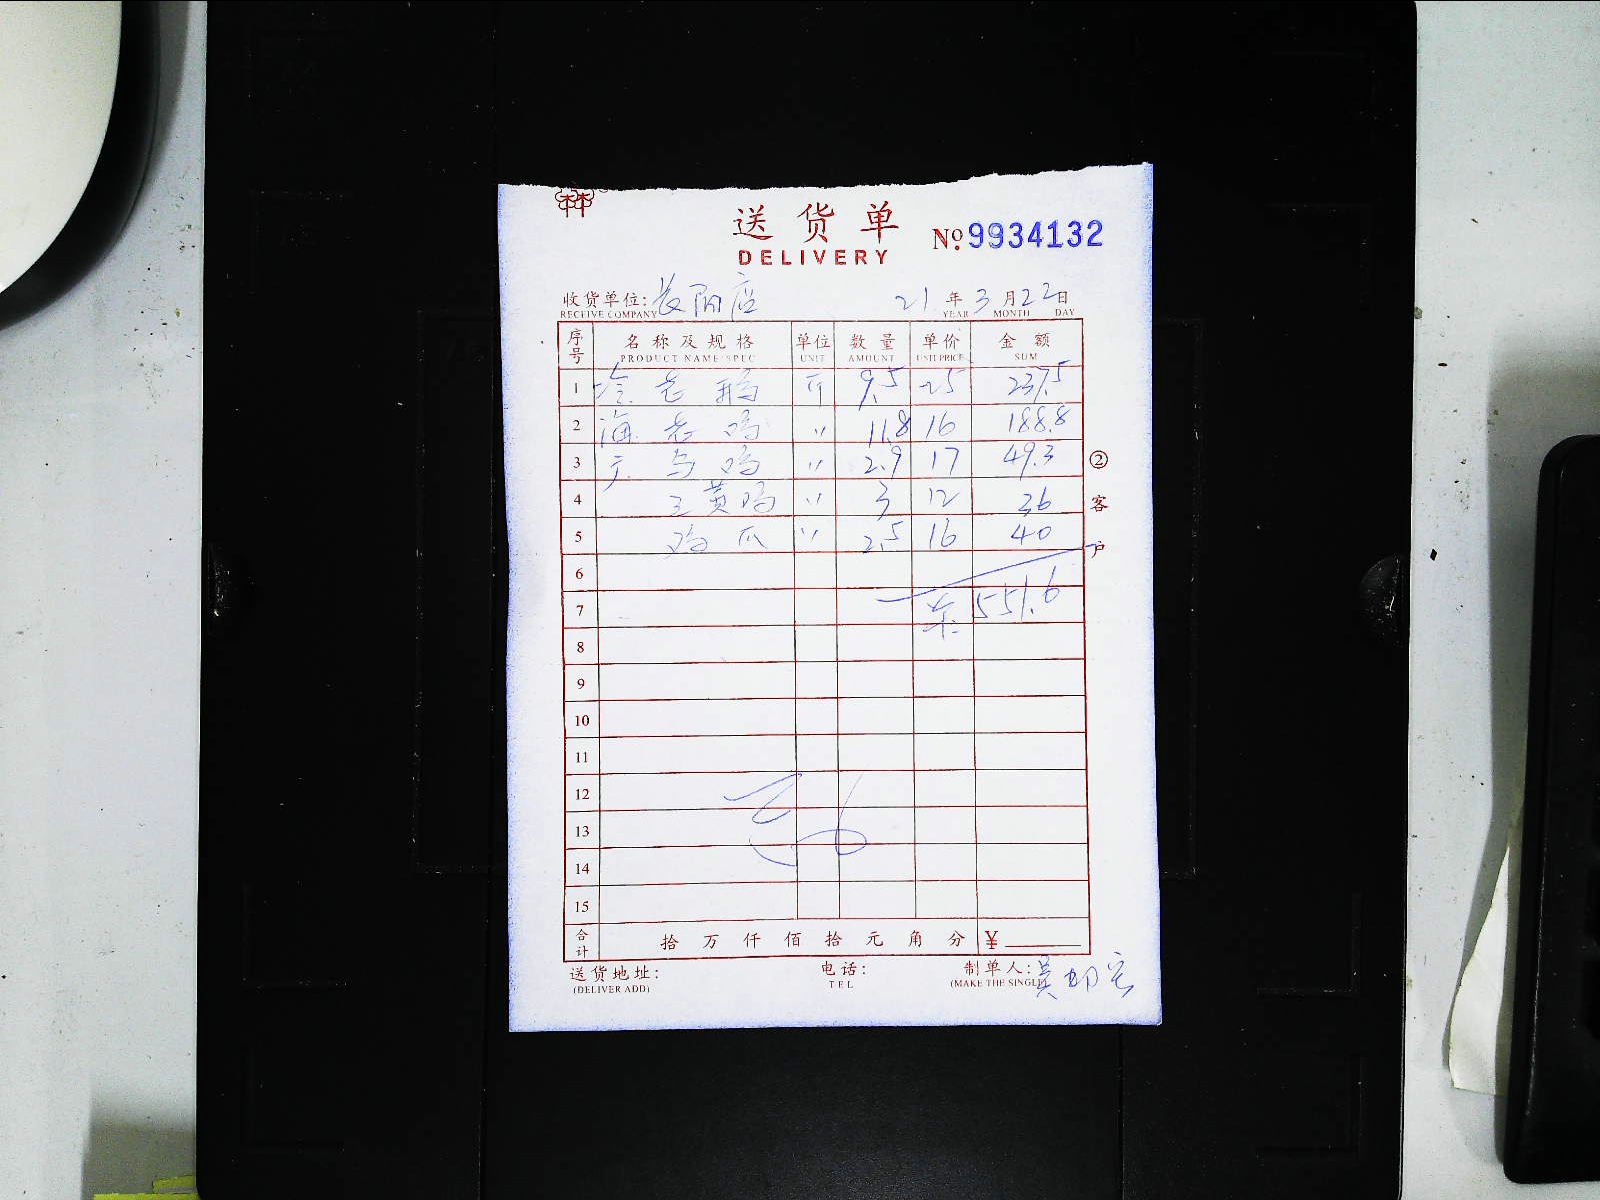 送货单
DELIVERY
№ 9934132
收货单位: 长阳店 21 年 3 月 22 日
RECEIVE COMPANY YEAR MONTH DAY
序号 名称及规格 单位 数量 单价 金额
PRODUCT NAME SPEC UNIT AMOUNT UNIT PRICE SUM
1 老 9.5 25 237.5
2 海老鸡 〃 11.8 16 188.8
3 鸡 〃 2.9 17 49.3
4 黄鸡 〃 3 12 36
5 鸡爪 〃 2.5 16 40
6
7 551.6
8
9
10
11
12
13
14
15
合计 拾 万 仟 佰 拾 元 角 分 ¥
② 客户
送货地址: 电话: 制单人:
(DELIVER ADD) TEL (MAKE THE SINGLE)